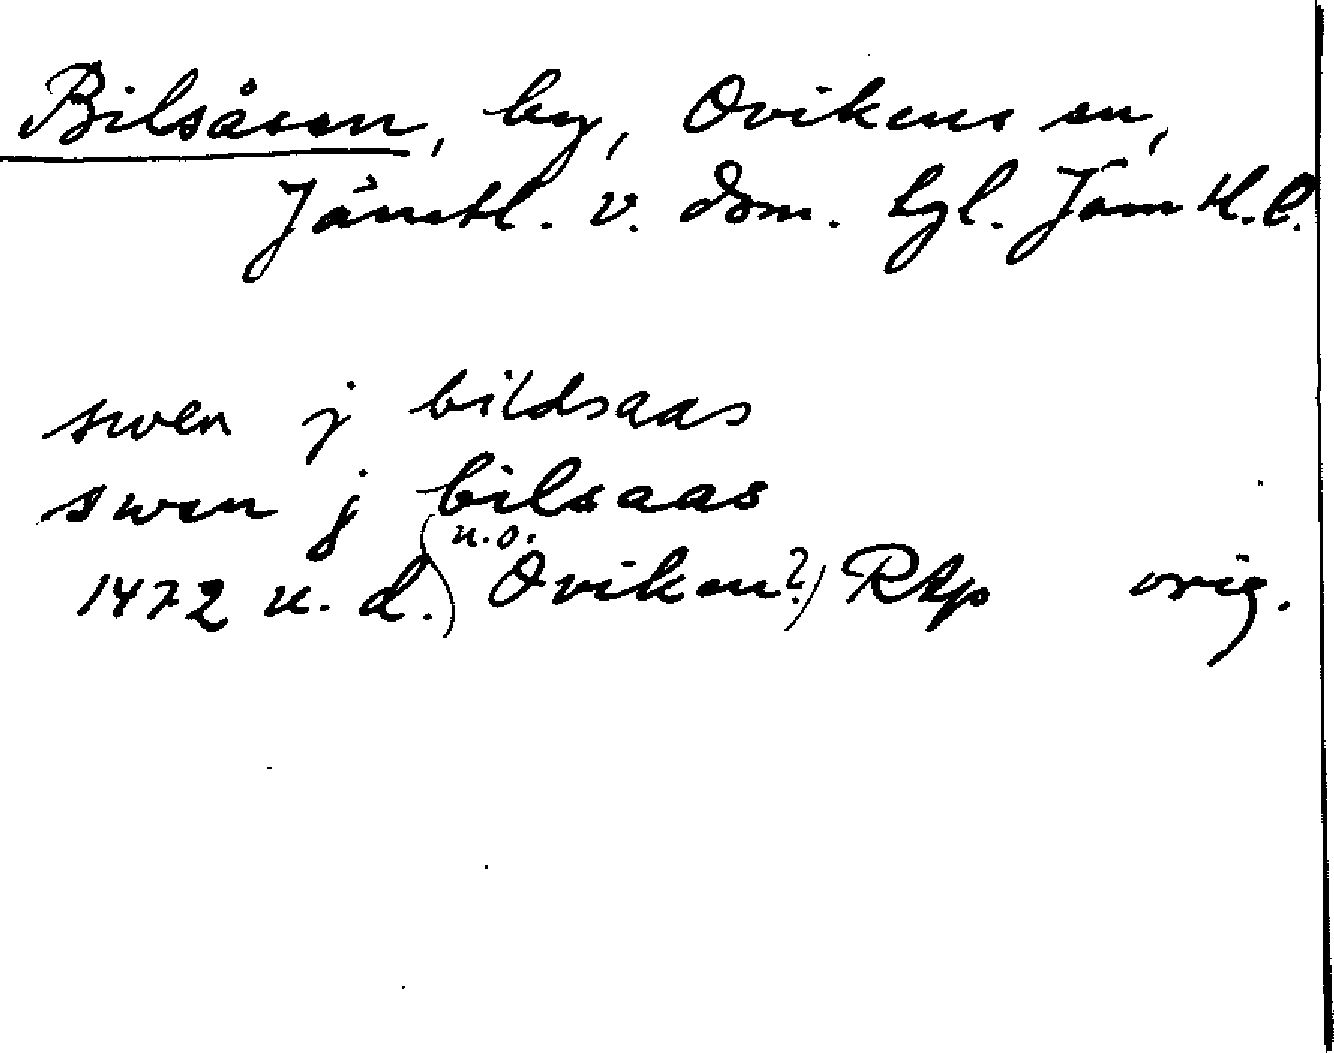 Bilsåsen, by, Ovikens sn,
Jämtl. v. dsm. tgl. Jämtl. l.
swen j bildsaas
swen j bilsaas
1472 u. d. (u.o. Oviken?) RAp orig.